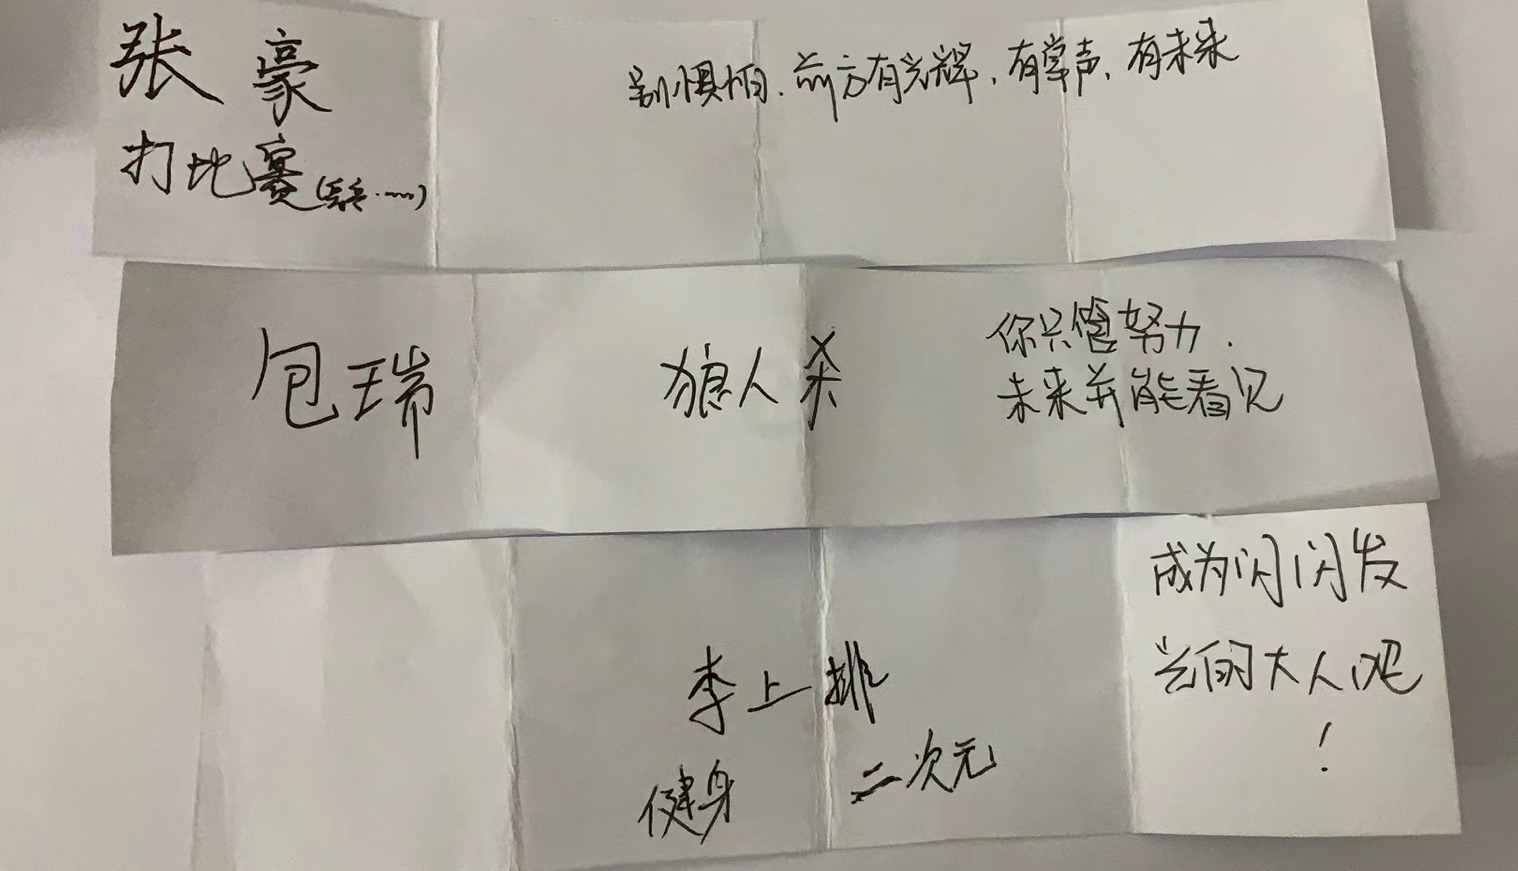 张豪
别惧怕.前方有光辉.有掌声.有未来
打比赛
包瑞
狼人杀
你只管努力.
未来并能看见
李上排
健身
二次元
成为闪闪发
光的大人吧
!